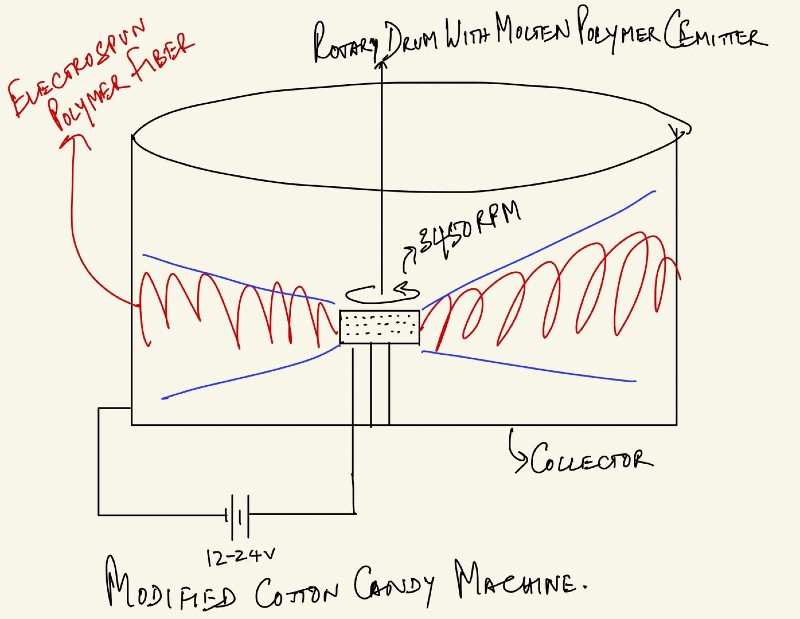 ROTARY DRUM WITH MOLTEN POLYMER (EMITTER
ELECTROSPUN
POLYMER FIBER
3450 RPM
COLLECTOR
12-24V
MODIFIED COTTON CANDY MACHINE.